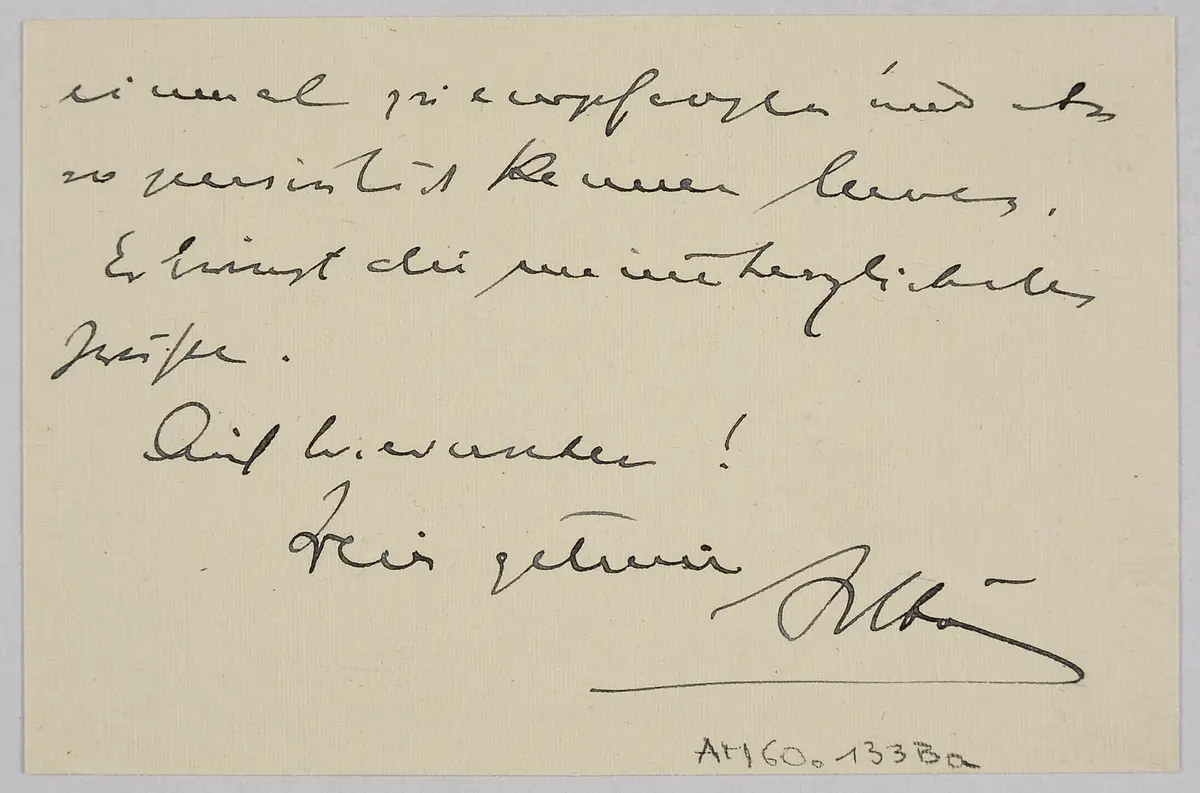 einmal zu empfangen und ihn
so persönlich kennen lernen.
Er bringt dir meine herzlichsten
Grüße.
Auf Wiedersehen!
Dein getreuer
AM 60.133Ba